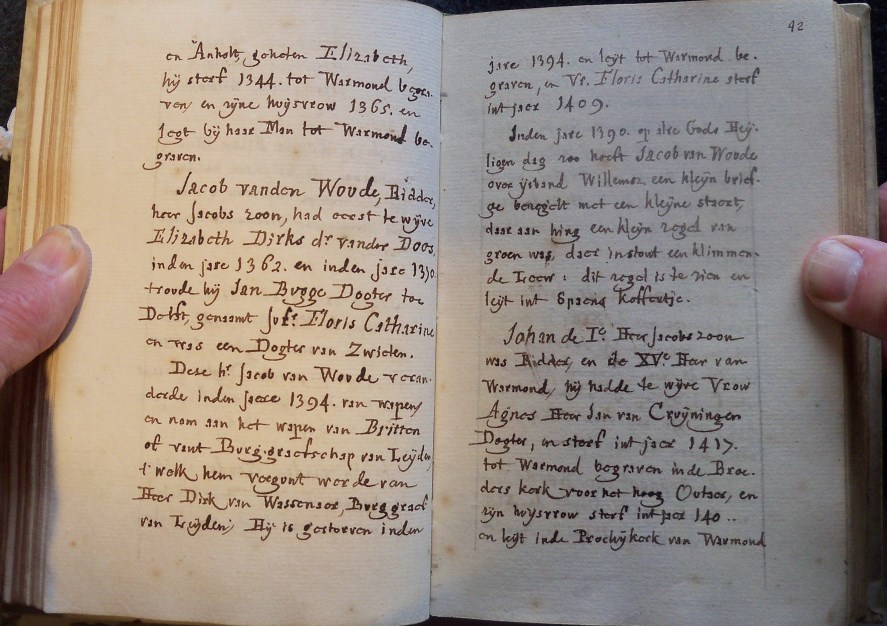 en Anholt, geheten Elizabeth,
hij sterf 1344. tot Warmond begra-
ven, en zijne huijsvrow 1365. en
legt bij haar Man tot Warmond be-
graven.
Jacob vanden Woude, Ridder,
heer Jacobs zoon, had eerst te wijve
Elizabeth Dirks dr vander Does,
inden jare 1362. en inden jare 1370
troude hij Jan Bugge Dogter tot
Delft, genaamt Jufr. Floris Catharine
en was een Dogter van Zwieten.
Dese hr. Jacob van Woude veran-
derde inden jaere 1394. van wapen,
en nam aan het wapen van Britten
of vant Burg-graefschap van Leijden,
t welk hem vergunt werde van
Heer Dirk van Wassenaer, Burggraef
van Leijden, Hij is gestorven inden
42
jare 1394. en leijt tot Warmond be-
graven, en Vr. Floris Catharine sterf
int jaer 1409.
Inden jare 1390. op alre Gods Heij-
ligen dag zoo heeft Jacob van Woude
over ijsband Willemsz. een kleijn brief-
ge bezegelt met een kleijne staert,
daar aan hing een kleijn zegel van
groen was, daer in stont een klimmen-
de Leew: dit zegel is te zien en
leijt int Spaens Koffertje.
Johan de Ie. Heer Jacobs zoon
was Ridder, en de XVe. Heer van
Warmond, hij hadde te wijve Vrow
Agnes Heer Jan van Cruijningen
Dogter, en sterf int jaer 1417.
tot Warmond begraven inde Broe-
ders kerk voor het hoog Outaer, en
zijn huijsvrow sterf int jaer 140..
en leijt inde Prochijkerk van Warmond